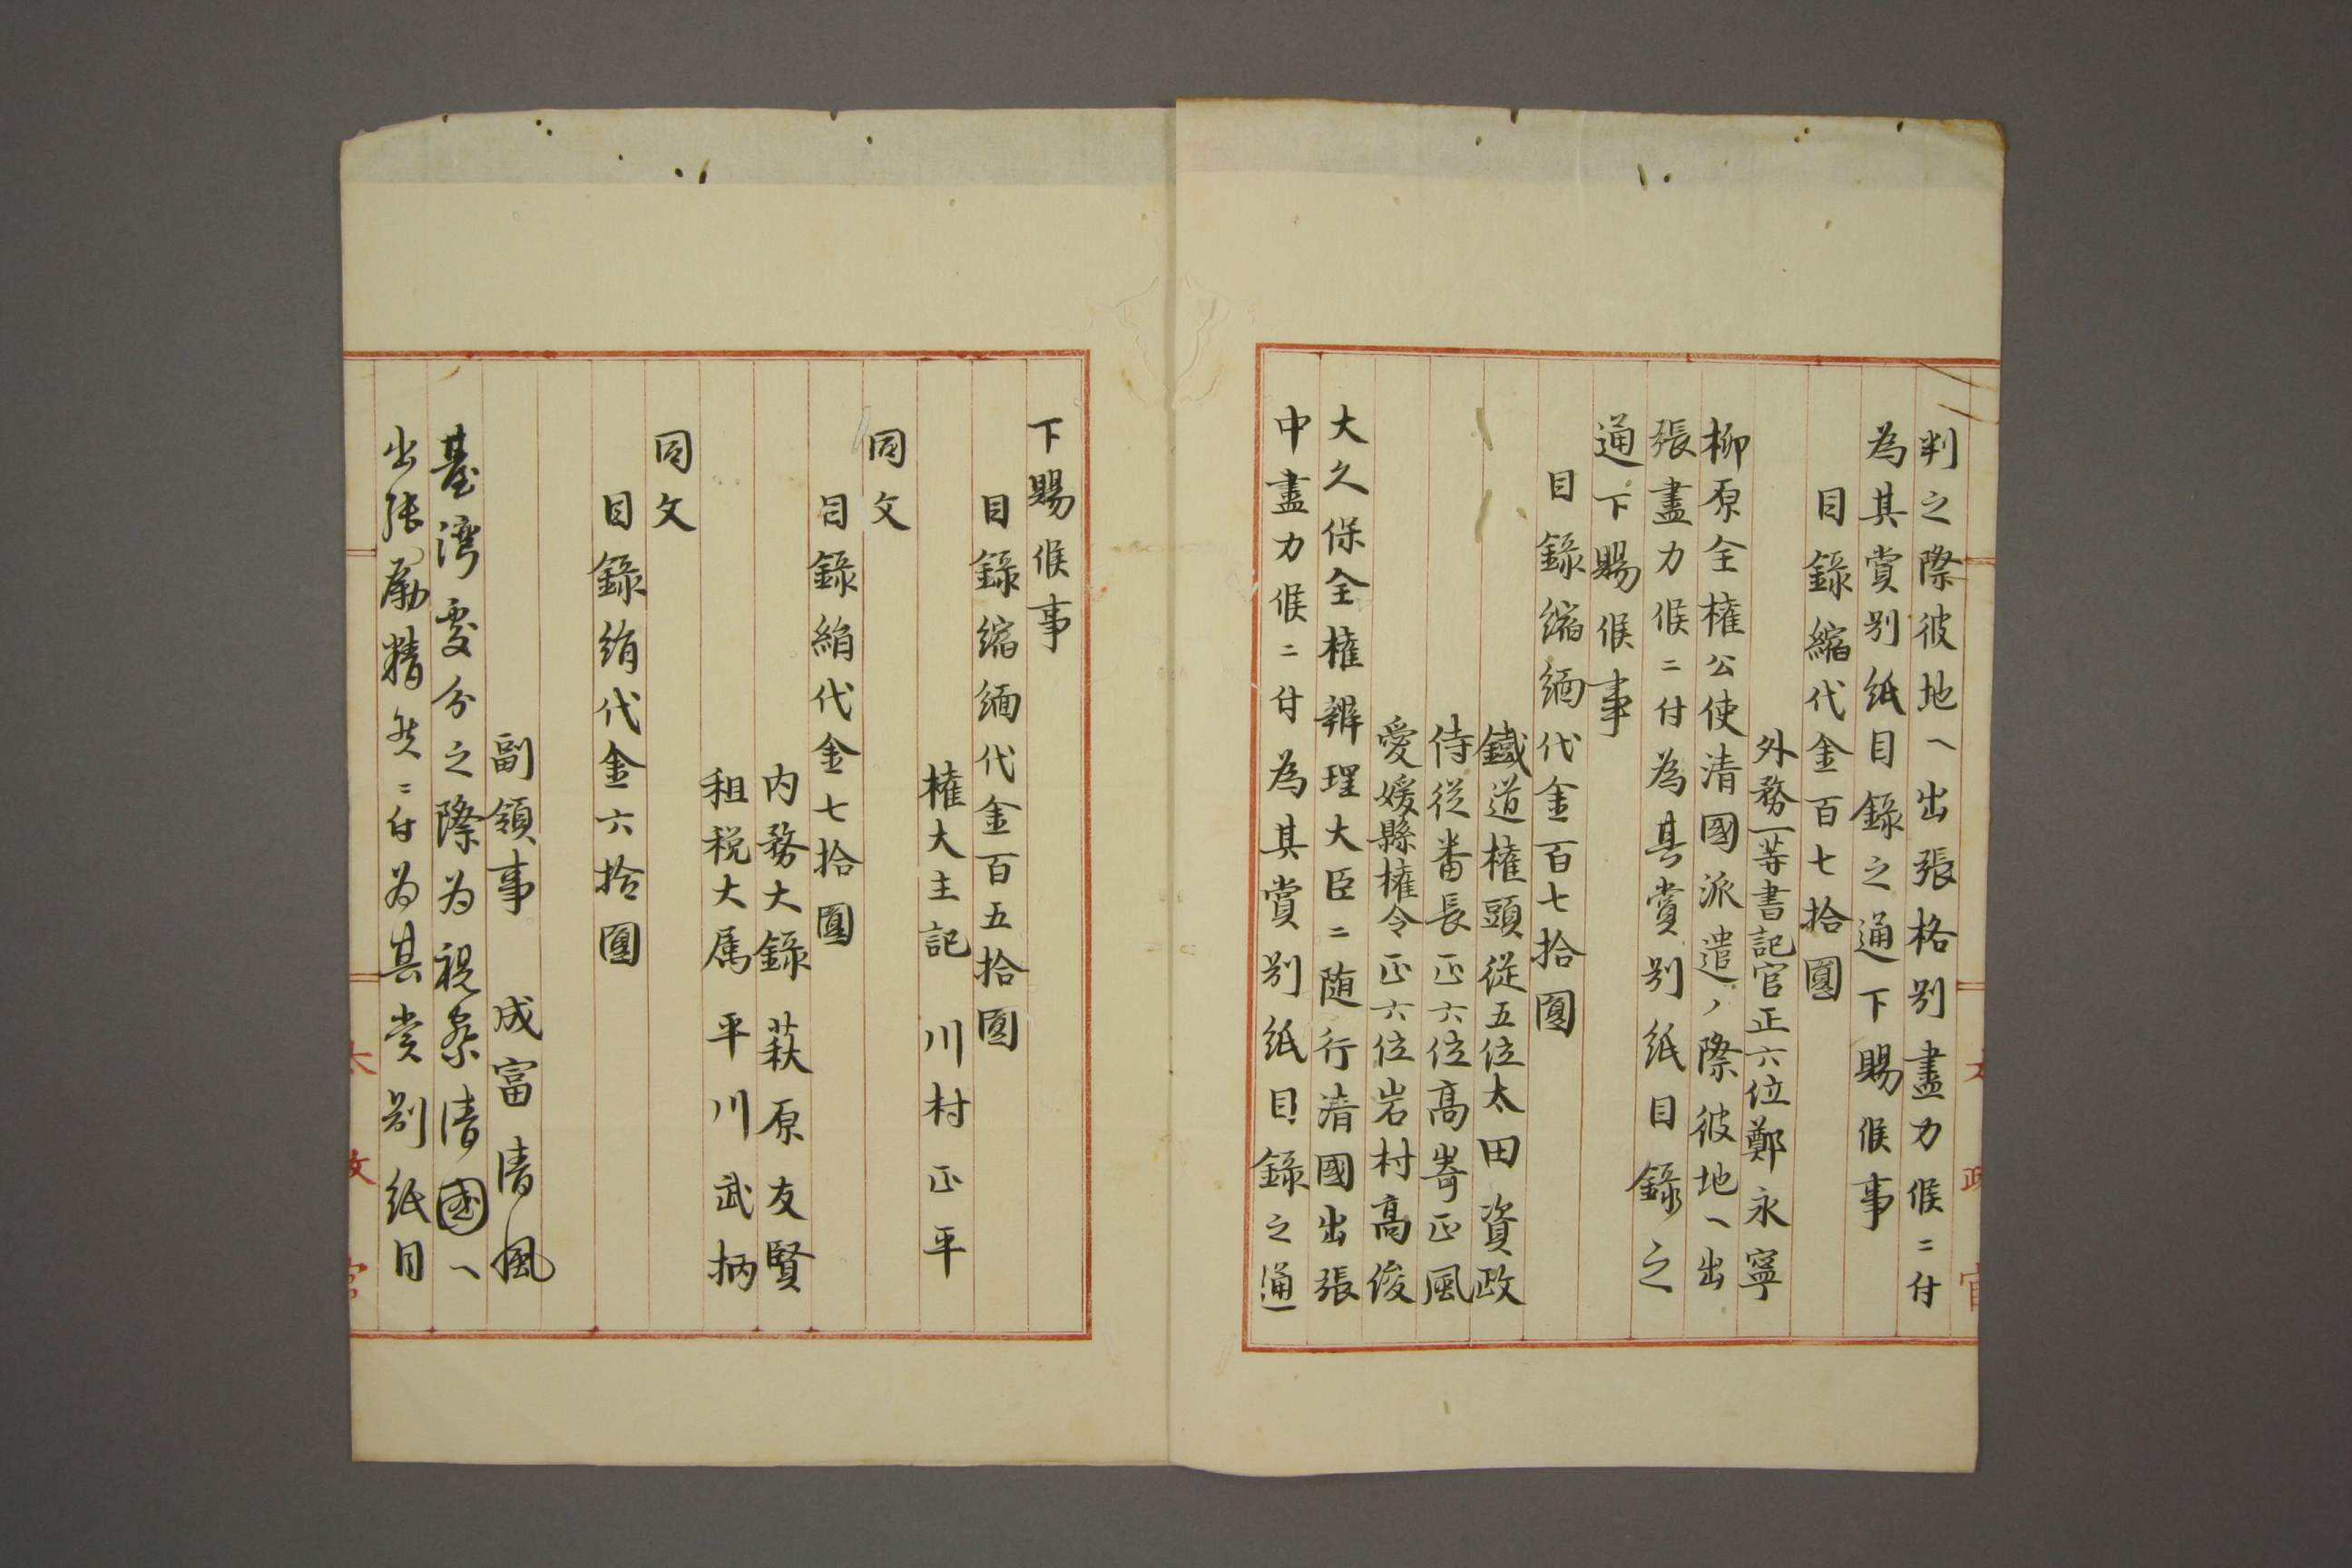 判之際彼地ヘ出張格别盡力候ニ付
為其賞別紙目錄之通下賜候事
目錄縮代金百七拾圓
外務一等書記官正六位鄭永寧
柳原全権公使清國派遣ノ際彼地ヘ出
張盡力候ニ付為其賞別紙目錄之
通下賜候事
目錄縮緬代金百七拾圓
鐵道権頭從五位太田資政
侍從番長正六位高嵜正風
愛媛縣権令正六位岩村高俊
大久保全権辨理大臣ニ随行清國出張
中盡力候ニ付為其賞別紙目錄之通
下賜候事
目錄縮緬代金百五拾圓
権大主記 川村正平
同文
目錄絹代金七拾圓
内務大錄 萩原友賢
租税大属 平川武柄
同文
目錄絹代金六拾圓
副領事 成富清風
臺湾処分之際为視察清國ヘ
出張励精候ニ付为其赏别紙目
太政官